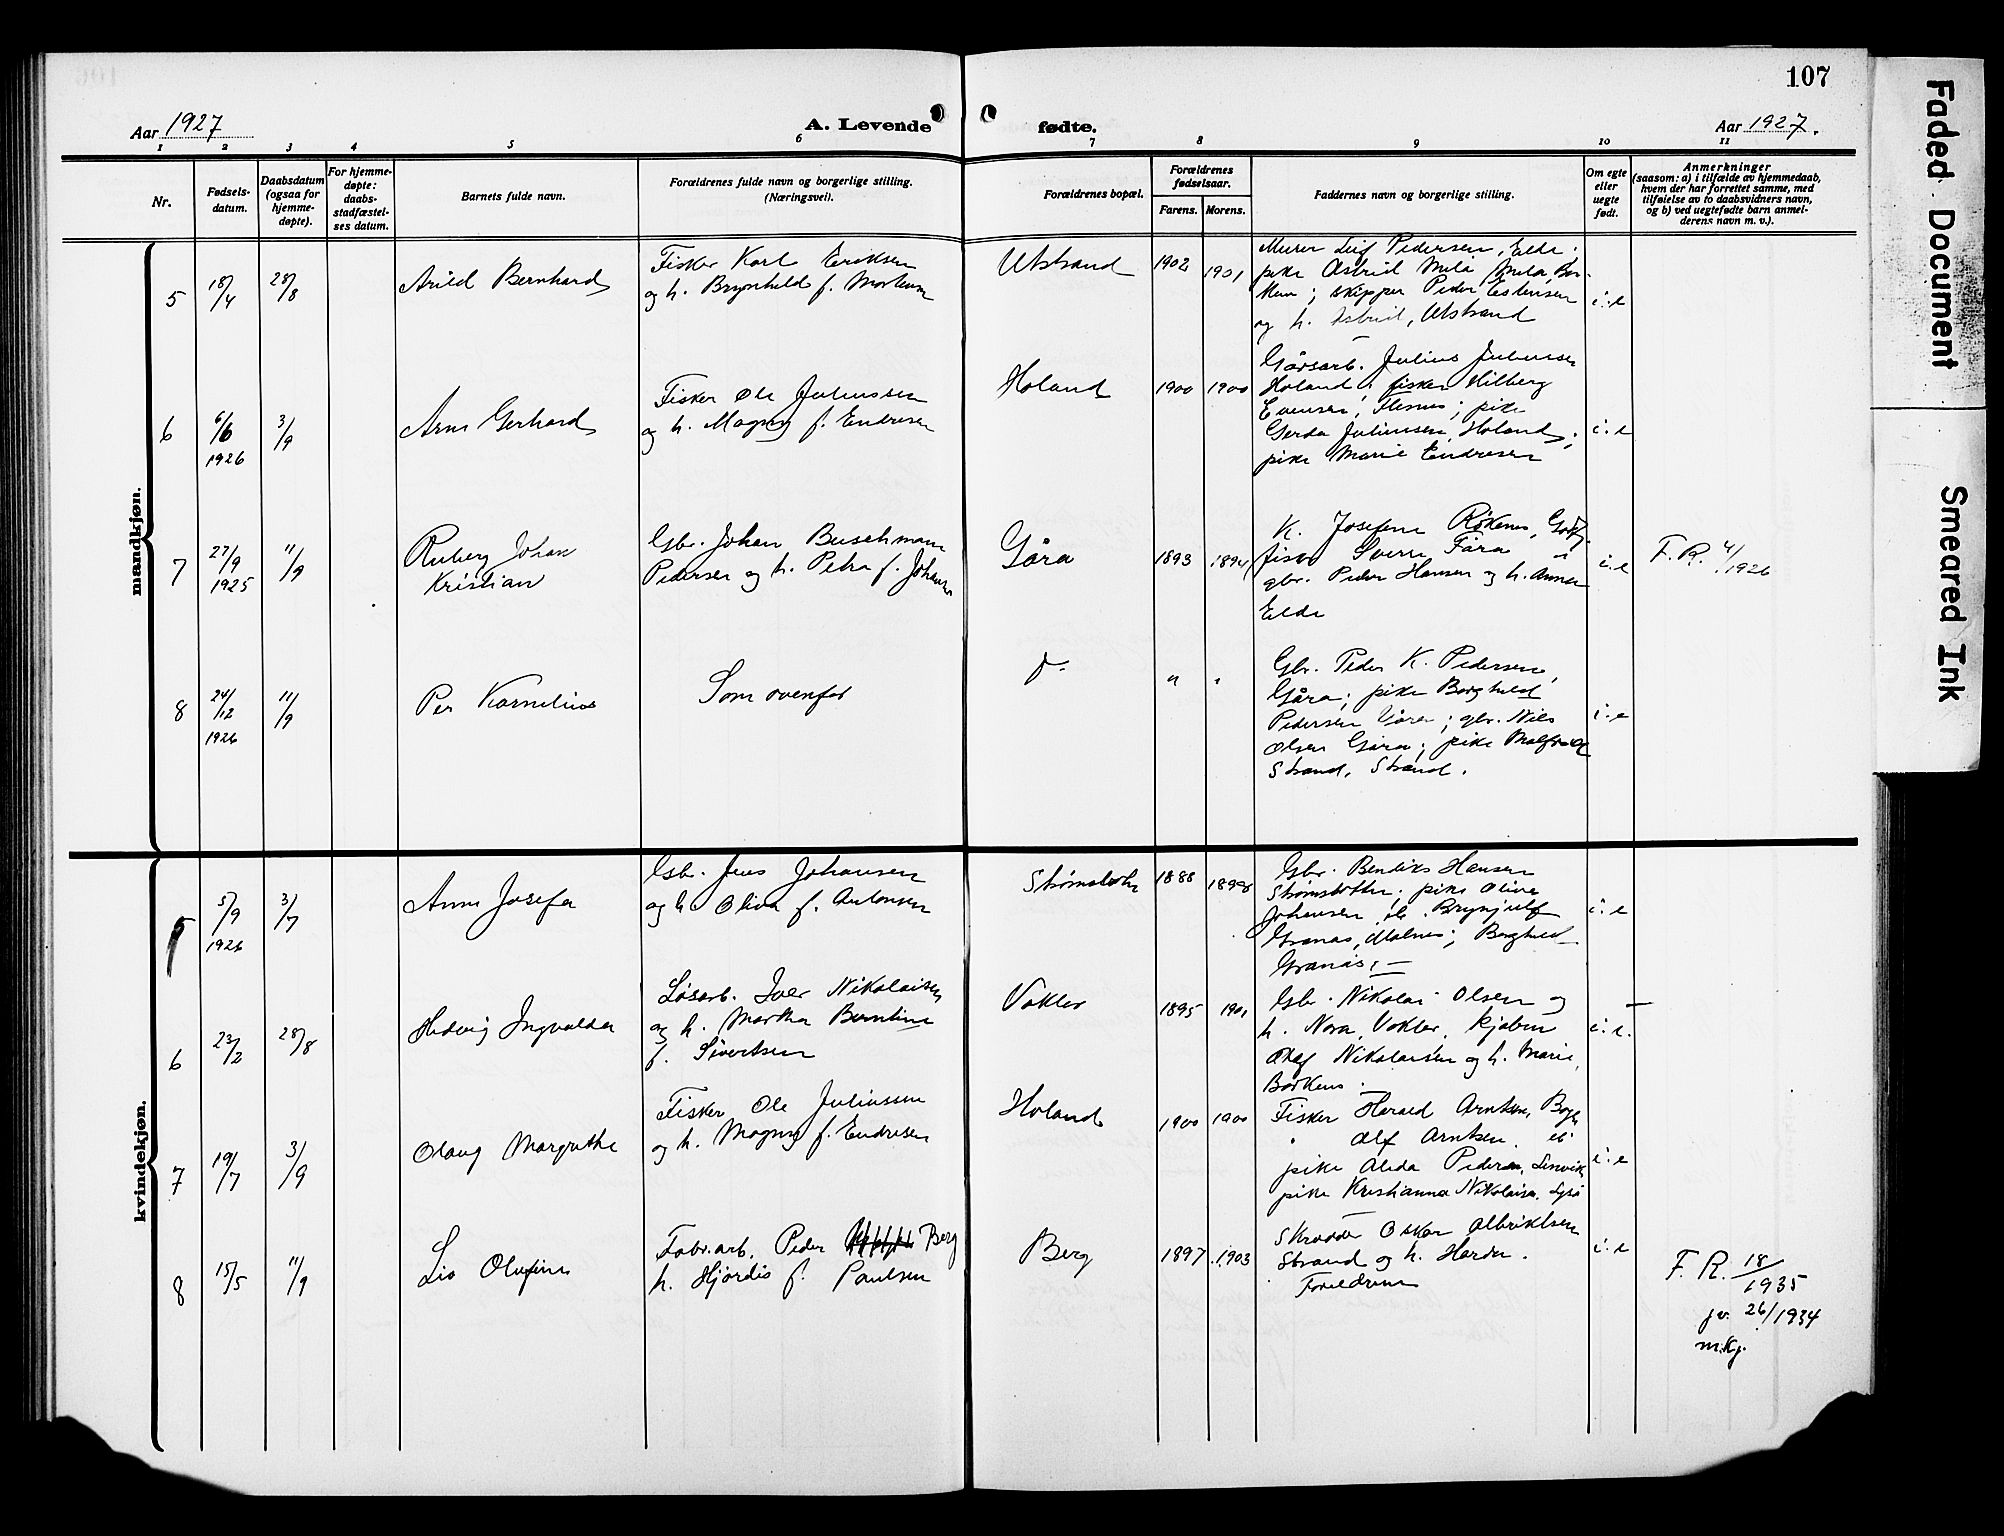 107
Aar 1927
A. Levende
fødte.
Aar 1927.
1 2 3 4 5 6 7 8 9 10 11
Nr.
Fødsels-
datum.
Daabsdatum
(ogsaa for
hjemme-
døpte).
For hjemme-
døpte:
daabs-
stadfæstel-
ses datum.
Barnets fulde navn.
Forældrenes fulde navn og borgerlige stilling.
(Næringsvei).
Forældrenes bopæl.
Forældrenes
fødselsaar.
Farens. Morens.
Faddernes navn og borgerlige stilling.
Om egte
eller
uegte
født.
Anmerkninger
(saasom: a) i tilfælde av hjemmedaab,
hvem der har forrettet samme, med
tilføielse av to daabsvidners navn,
og b) ved uegtefødte barn anmel-
derens navn m. v.).
mandkjøn.
5
18/4
28/8
Arild Bernhard
Fisker Karl Eriksen
og h. Brynhild f. Mortensen
Utstrand
1902
1901
Murer Leif Pedersen, Elde.
pike Astrid Milà
skipper Peder Estensen
og h. Astrid, Utstrand
i.e
6
6/6
1926
3/9
Arne Gerhard
Fisker Ole Juliussen
og h. Magny f. Endresen
Holand
1900
1900
Gårsarb. Julius Juliussen
Holand; fisker Hilberg
Evensen, Flesnes; pike
Gerda Juliussen, Holand;
pike Marie Endresen
i.e
7
27/9
1925
11/9
Ruberg Johan
Kristian
Gbr. Johan Buschmann
Pedersen og h. Petra f. Johans
Gåra
1893
1894
K. Josefine Røkenes,
fisker Sverre Fåra
gbr. Peder Hansen og h. Anna
Elde
i.e
F. R. 4/1926
8
24/12
1926
11/9
Per Kornelius
Som ovenfor
" "
Gbr. Peder K. Pedersen,
Gåra; pike Borghild
Pedersen Gåra; gbr. Nils
Olsen Gåra; pike Malfrid
Strand, Strand.
i.e
kvindekjøn.
5
5/9
1926
3/7
Anne Josefa
Gbr. Jens Johansen
og h. Oliva f. Antonsen
Strømsbotn
1888
1898
Gbr. Bendiks Hansen
Strømsbotn; pike Olive
Johansen, Brynjulf
Granås, Malnes; Borghild
Granås, —
i.e
6
23/2
28/8
Hedvig Ingvalda
Løsarb. Iver Nikolaisen
og h. Martha Berntine
f. Sivertsen
Vokler
1895
1901
Gbr. Nikolai Olsen og
h. Nora, Vokler, kjøbm
Olaf Nikolaisen og h. Marie,
Borkenes.
i.e.
—
7
19/7
3/9
Olaug Margrethe
Fisker Ole Juliussen
og h. Magny f. Endresen
Holand
1900
1900
Fisker Harald Arntsen,
" Alf Arntsen,
pike Alida Pedersen, Lenvik
pike Kristianna Nikolaisen,
i.e
8
15/5
11/9
Liv Olufine
Fabr.arb. Peder Berg
h. Hjørdis f. Paulsen
Berg
1897
1903
Skrædder Oskar Albriktsen
Strand og h. Harda.
Foreldrene
i.e
F. R. 18/1935
jv. 26/1934
m.kj.
Faded Document
Smeared Ink